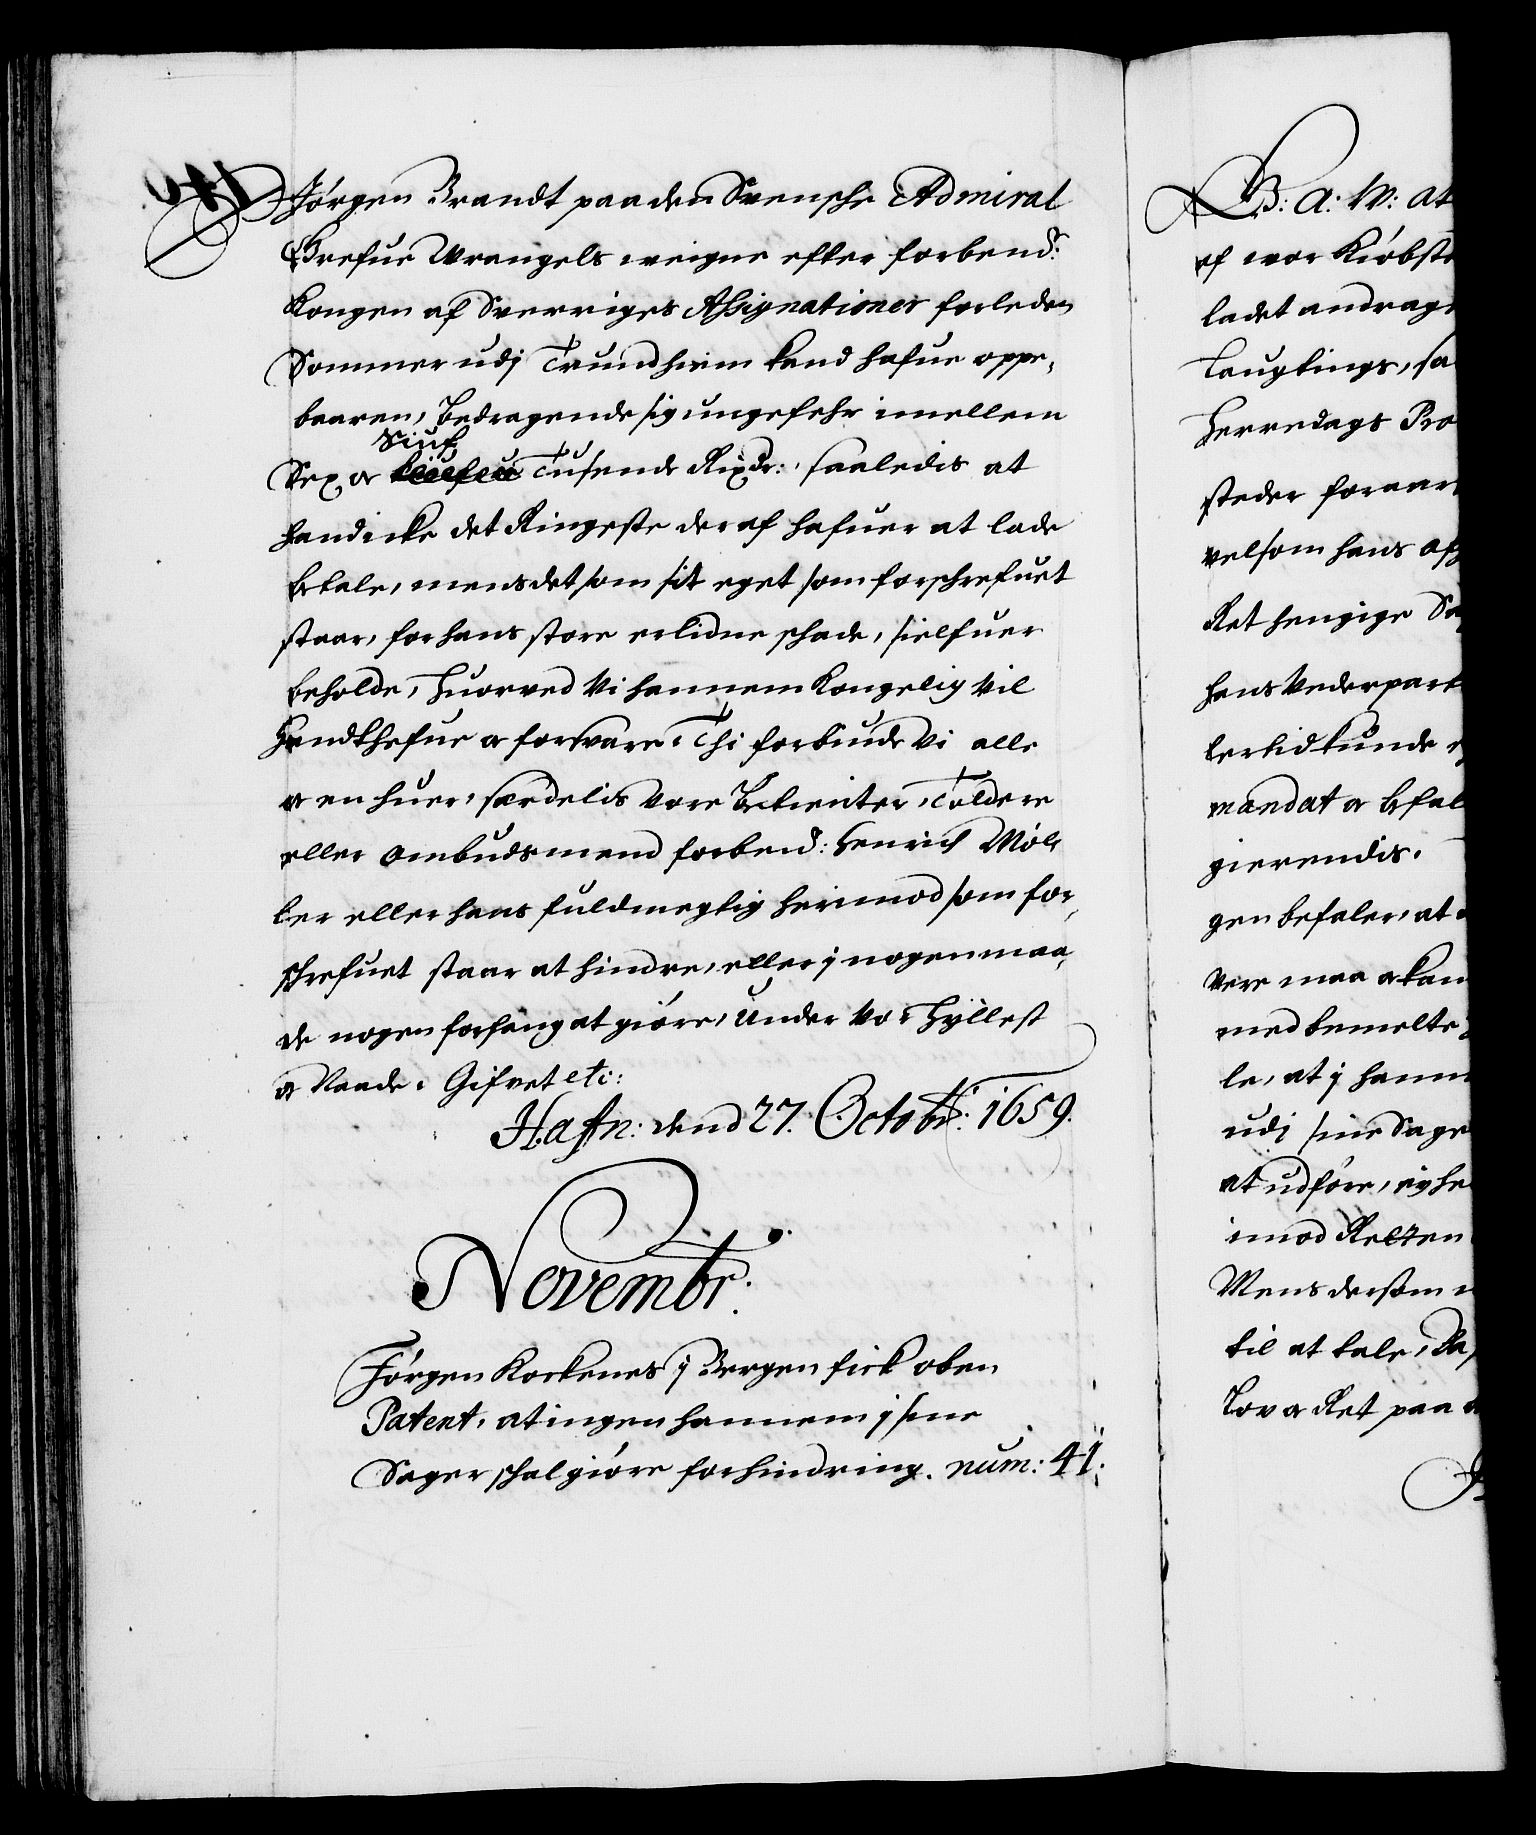 Jörgen Brandt paa den Svensche Admiral
Grefue Wrangels veigne efter forbend:
Kongen af Sverriges Assignationer forleden
Sommer udj Trundhiem kand hafue oppe,
baaren, Bedragende sig ungefehr imellem
Siuf
Sex oc Tusende Rixdr:, saaledis at
hand icke det Ringeste der af hafuer at lade
betale, mens det som sit eget som forschrefuet
staar, for hans store erlidne schade, sielfuer
beholde, Huorved Vi hannem Kongelig vil
Handthefue oc forsvare. Thi forbiude Vi alle
oc en huer, særdelis Vore Betienter, Toldere
eller Ombudsmend forbend: Henrich Möl,
ler eller hans fuldmegtig herimod som for,
schrefuet staar at hindre, eller j nogen maa,
de nogen forfang at giöre, Under Vor Hyllest
oc Naade. Gifvet etc:
Hafn: dend 27. Octobr: 1659.
Novembr:
Jörgen Kockenes j Bergen fick oben
Patent, at ingen hannem j sine
Sager schal giöre forhindring. num: 41.
G: A: W: At
af vor Kiöbste
ladet andrage
Laugtings, sa
Herredags Pro
steder foraar
velsom hans af
Ret hengige Sa
hans Vederpart
lertid kunde
mandat oc befal
gierendis.
gen befaler, at
Vere maa oc kan
med bemelte
le, at j hann
udj sine Sage
at udföre, ey he
imod Retten
Mens dersom
til at tale, Da
Lov oc Ret paa